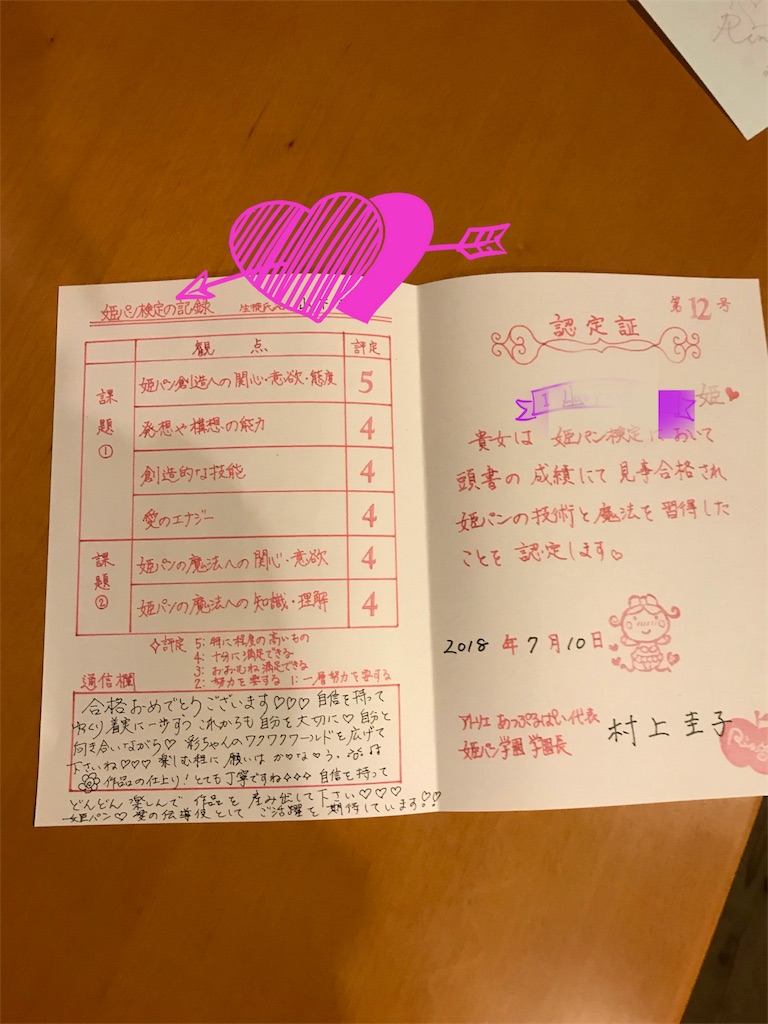 姫パン検定の記録
観点 評定
課題① 姫パン創造への関心・意欲・態度 5
発想や構想の能力 4
創造的な技能 4
愛のエナジー 4
課題② 姫パンの魔法への関心・意欲 4
姫パンの魔法への知識・理解 4
◇評定 5: 特に程度の高いもの
4: 十分に満足できる
3: おおむね満足できる
2: 努力を要する 1: 一層努力を要する
通信欄
合格おめでとうございます♡♡♡ 自信を持って
ゆっくり着実に一歩ずつ これからも自分を大切に♡ 自分と
向き合いながら♡ 彩ちゃんのワクワクワールドを広げて
下さいね♡♡♡ 楽しむ程に 願いは か♡な♡う。
作品の仕上り! とても丁寧ですね✧✧✧ 自信を持って
どんどん 楽しんで 作品を 産み出して下さい♡♡♡
姫パン♡愛の伝導使として ご活躍を期待しています!!
第12号
認定証
姫♥
貴女は 姫パン検定において
頭書の成績にて見事合格され
姫パンの技術と魔法を習得した
ことを認定します♡
2018年7月10日
アトリエ あっぷるぱい代表
姫パン学園 学園長
村上圭子